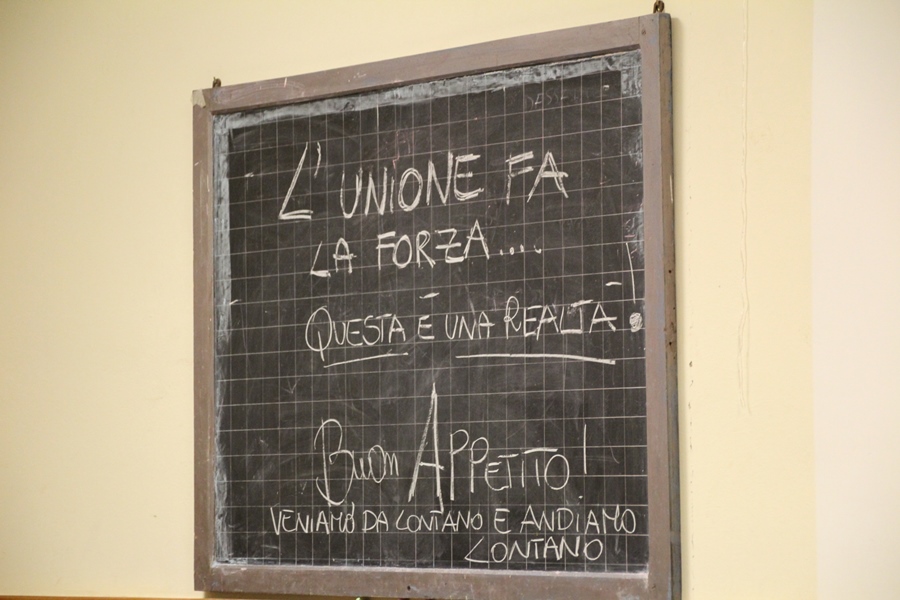 L'UNIONE FA
LA FORZA....
QUESTA È UNA REALTÀ!
BUON APPETITO!
VENIAMO DA LONTANO E ANDIAMO
LONTANO